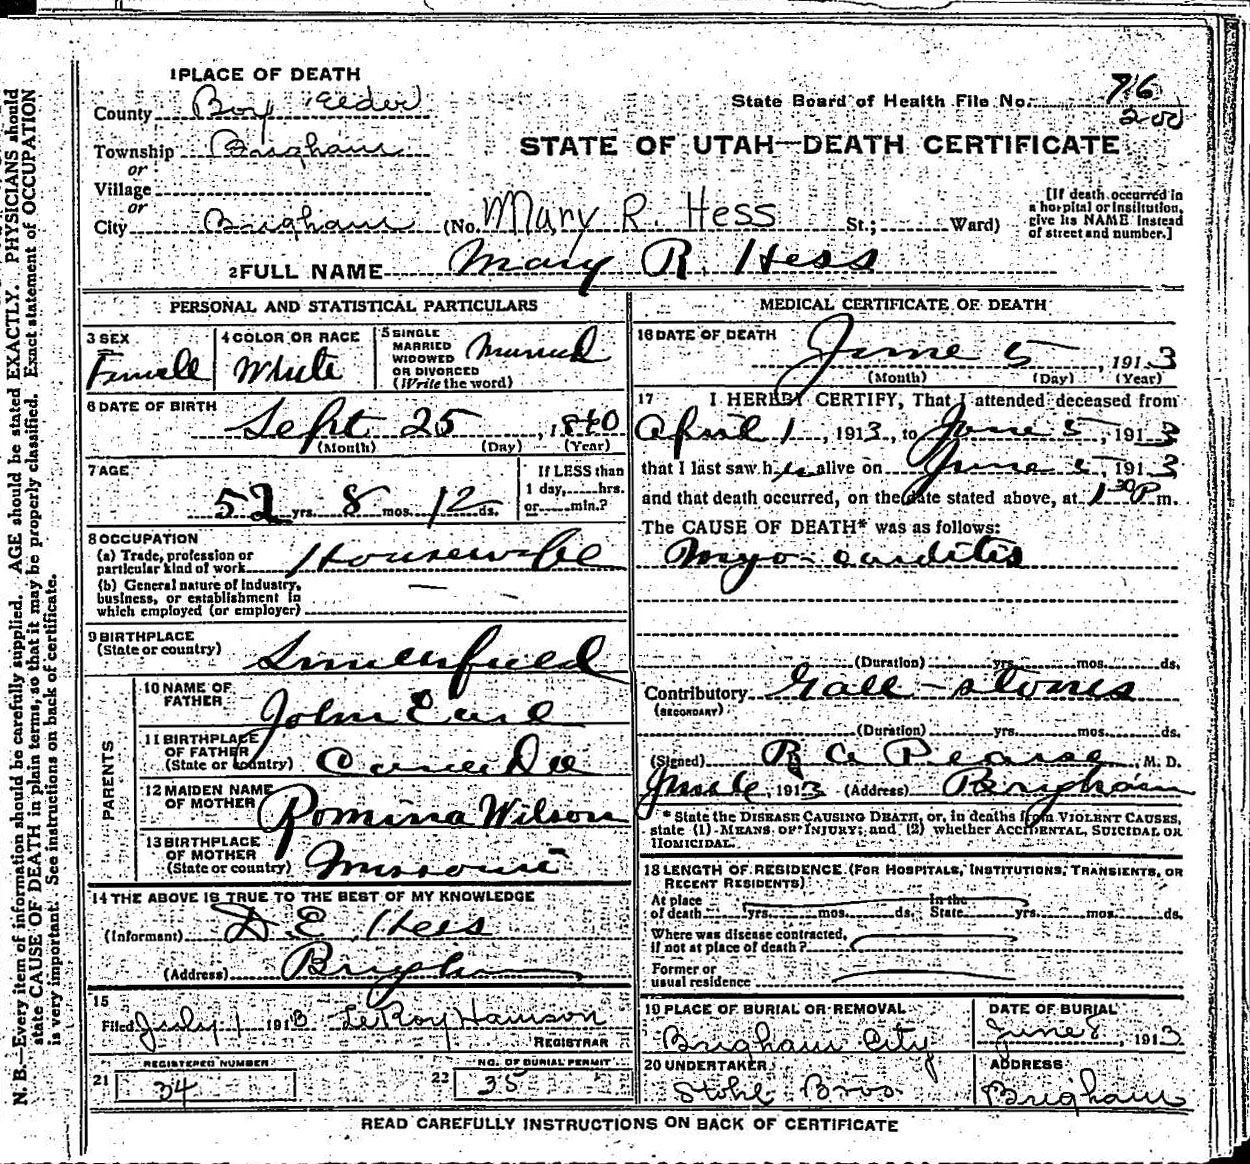 N. B.—Every item of information should be carefully supplied. AGE should be stated EXACTLY. PHYSICIANS should
state CAUSE OF DEATH in plain terms, so that it may be properly classified. Exact statement of OCCUPATION
is very important. See instructions on back of certificate.
1 PLACE OF DEATH
County Box Elder
State Board of Health File No. 76
200
Township Brigham
STATE OF UTAH—DEATH CERTIFICATE
or
Village
or
City Brigham (No. Mary R. Hess St.; Ward)
[If death occurred in
a hospital or institution,
give its NAME instead
of street and number.]
2 FULL NAME Mary R. Hess
PERSONAL AND STATISTICAL PARTICULARS
3 SEX
Female
4 COLOR OR RACE
White
5 SINGLE
MARRIED
WIDOWED
OR DIVORCED
(Write the word)
Married
6 DATE OF BIRTH
Sept 25, 1860
(Month) (Day) (Year)
7 AGE
52 yrs. 8 mos. 12 ds.
If LESS than
1 day, hrs.
or min.?
8 OCCUPATION
(a) Trade, profession or
particular kind of work Housewife
(b) General nature of industry,
business, or establishment in
which employed (or employer) —
9 BIRTHPLACE
(State or country)
PARENTS
10 NAME OF
FATHER
John Earl
11 BIRTHPLACE
OF FATHER
(State or country)
12 MAIDEN NAME
OF MOTHER
Romina Wilson
13 BIRTHPLACE
OF MOTHER
(State or country) Missouri
14 THE ABOVE IS TRUE TO THE BEST OF MY KNOWLEDGE
(Informant) D. E. Hess
(Address) Brigham
15
Filed July 1 1913 LeRoy Hamson
REGISTRAR
REGISTERED NUMBER
21 34
NO. OF BURIAL PERMIT
22 35
MEDICAL CERTIFICATE OF DEATH
16 DATE OF DEATH
June 5, 1913
(Month) (Day) (Year)
17 I HEREBY CERTIFY, That I attended deceased from
April 1, 1913, to June 5, 1913
that I last saw her alive on June 5, 1913
and that death occurred, on the date stated above, at 1 30 P m.
The CAUSE OF DEATH* was as follows:
Myo-carditis
(Duration) yrs. mos. ds.
Contributory Gall-stones
(SECONDARY)
(Duration) yrs. mos. ds.
(Signed) R A Pearse, M. D.
June 6, 1913 (Address) Brigham
* State the DISEASE CAUSING DEATH, or, in deaths from VIOLENT CAUSES,
state (1) MEANS OF INJURY; and (2) whether ACCIDENTAL, SUICIDAL OR
HOMICIDAL.
18 LENGTH OF RESIDENCE (FOR HOSPITALS, INSTITUTIONS, TRANSIENTS, OR
RECENT RESIDENTS)
At place
of death yrs. mos. ds.
In the
State yrs. mos. ds.
Where was disease contracted,
if not at place of death?
Former or
usual residence
19 PLACE OF BURIAL OR REMOVAL
Brigham City
DATE OF BURIAL
June 8, 1913
20 UNDERTAKER
Stohl Bros
ADDRESS
Brigham
READ CAREFULLY INSTRUCTIONS ON BACK OF CERTIFICATE